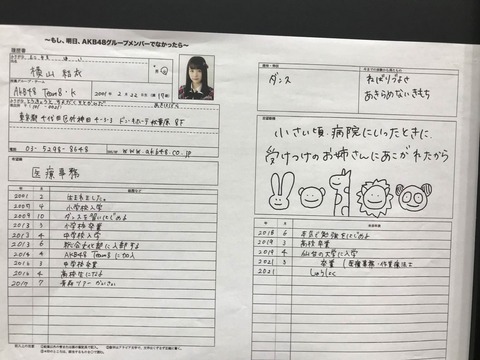 ～もし、明日、AKB48グループメンバーでなかったら～
履歴書
横山 結衣
AKB48 Team8・K
2001年 2月 22日生 (満17歳)
〒101-0021
東京都千代田区外神田 4-3-3 ドン・キホーテ秋葉原 8F
03-5298-8648
www.akb48.co.jp
医療事務
2001 2 生まれました。
2007 4 小学校入学
2009 10 ダンスを習いはじめる
2013 3 小学校卒業
2013 4 中学校入学
2013 6 総合文化部に入部する
2014 4 AKB48 Team8 に加入
2016 3 中学校卒業
2016 4 高校生になる
2017 7 青森ツアーかいさい
ダンス
ねばりづよさ
あきらめないきもち
小さい頃、病院にいったときに、
受けつけのお姉さんにあこがれたから
2018 6 本気で勉強をはじめる
2019 3 高校卒業
2019 4 仙台の大学に入学
2021 3 卒業 (医療事務・作業療法士
2021 しゅうしょく